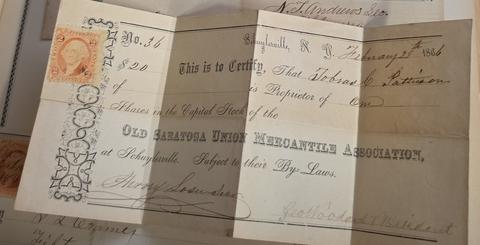 N. T. Andrews Sec.
No. 36
Schuylerville, N. Y. February 20th 1866
$20
This is to Certify, That Tobias C. Pattison
is Proprietor of One
of
Shares in the Capital Stock of the
OLD SARATOGA UNION MERCANTILE ASSOCIATION,
at Schuylerville. Subject to their By-Laws.
Henry
President